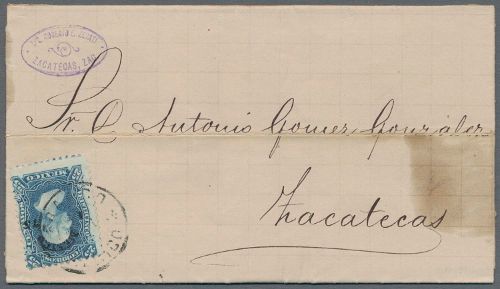 ZACATECAS, ZAC
Sr. D. Antonio Gomez Gonzalez
Zacatecas
MEXICO